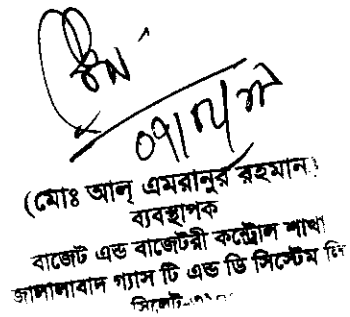 (মোঃ আল্ এমরানুর রহমান)
ব্যবস্থাপক
বাজেট এন্ড বাজেটরী কন্ট্রোল শাখা
জালালাবাদ গ্যাস টি এন্ড ডি সিস্টেম লিঃ
সিলেট